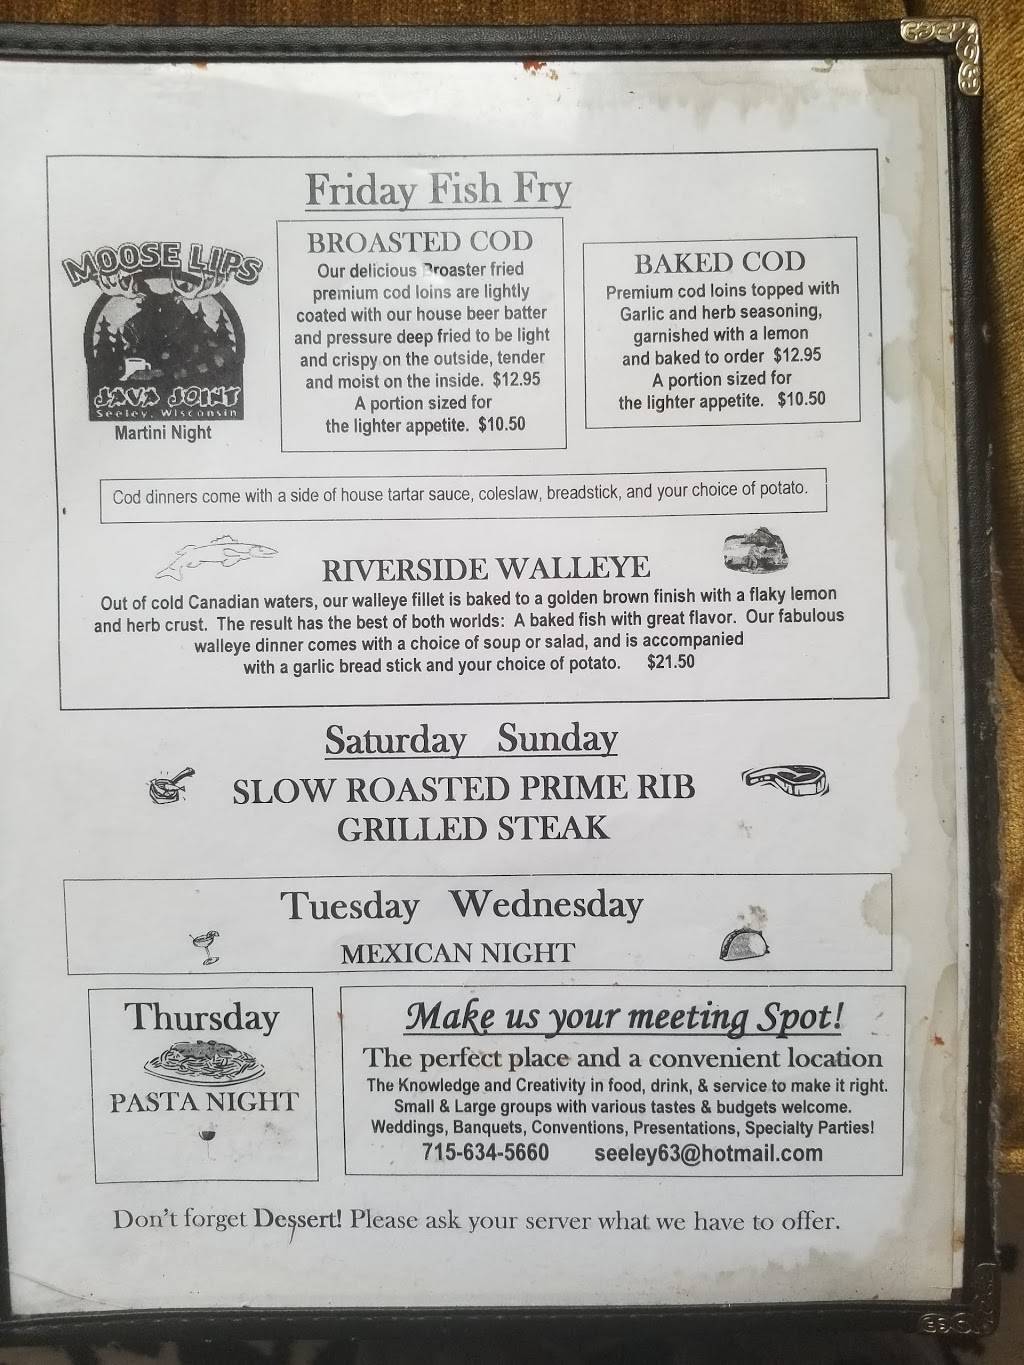 Friday Fish Fry
MOOSE LIPS
JAVA JOINT
Seeley, Wisconsin
Martini Night
BROASTED COD
Our delicious Broaster fried
premium cod loins are lightly
coated with our house beer batter
and pressure deep fried to be light
and crispy on the outside, tender
and moist on the inside. $12.95
A portion sized for
the lighter appetite. $10.50
BAKED COD
Premium cod loins topped with
Garlic and herb seasoning,
garnished with a lemon
and baked to order $12.95
A portion sized for
the lighter appetite. $10.50
Cod dinners come with a side of house tartar sauce, coleslaw, breadstick, and your choice of potato.
RIVERSIDE WALLEYE
Out of cold Canadian waters, our walleye fillet is baked to a golden brown finish with a flaky lemon
and herb crust. The result has the best of both worlds: A baked fish with great flavor. Our fabulous
walleye dinner comes with a choice of soup or salad, and is accompanied
with a garlic bread stick and your choice of potato. $21.50
Saturday Sunday
SLOW ROASTED PRIME RIB
GRILLED STEAK
Tuesday Wednesday
MEXICAN NIGHT
Thursday
PASTA NIGHT
Make us your meeting Spot!
The perfect place and a convenient location
The Knowledge and Creativity in food, drink, & service to make it right.
Small & Large groups with various tastes & budgets welcome.
Weddings, Banquets, Conventions, Presentations, Specialty Parties!
715-634-5660 seeley63@hotmail.com
Don't forget Dessert! Please ask your server what we have to offer.